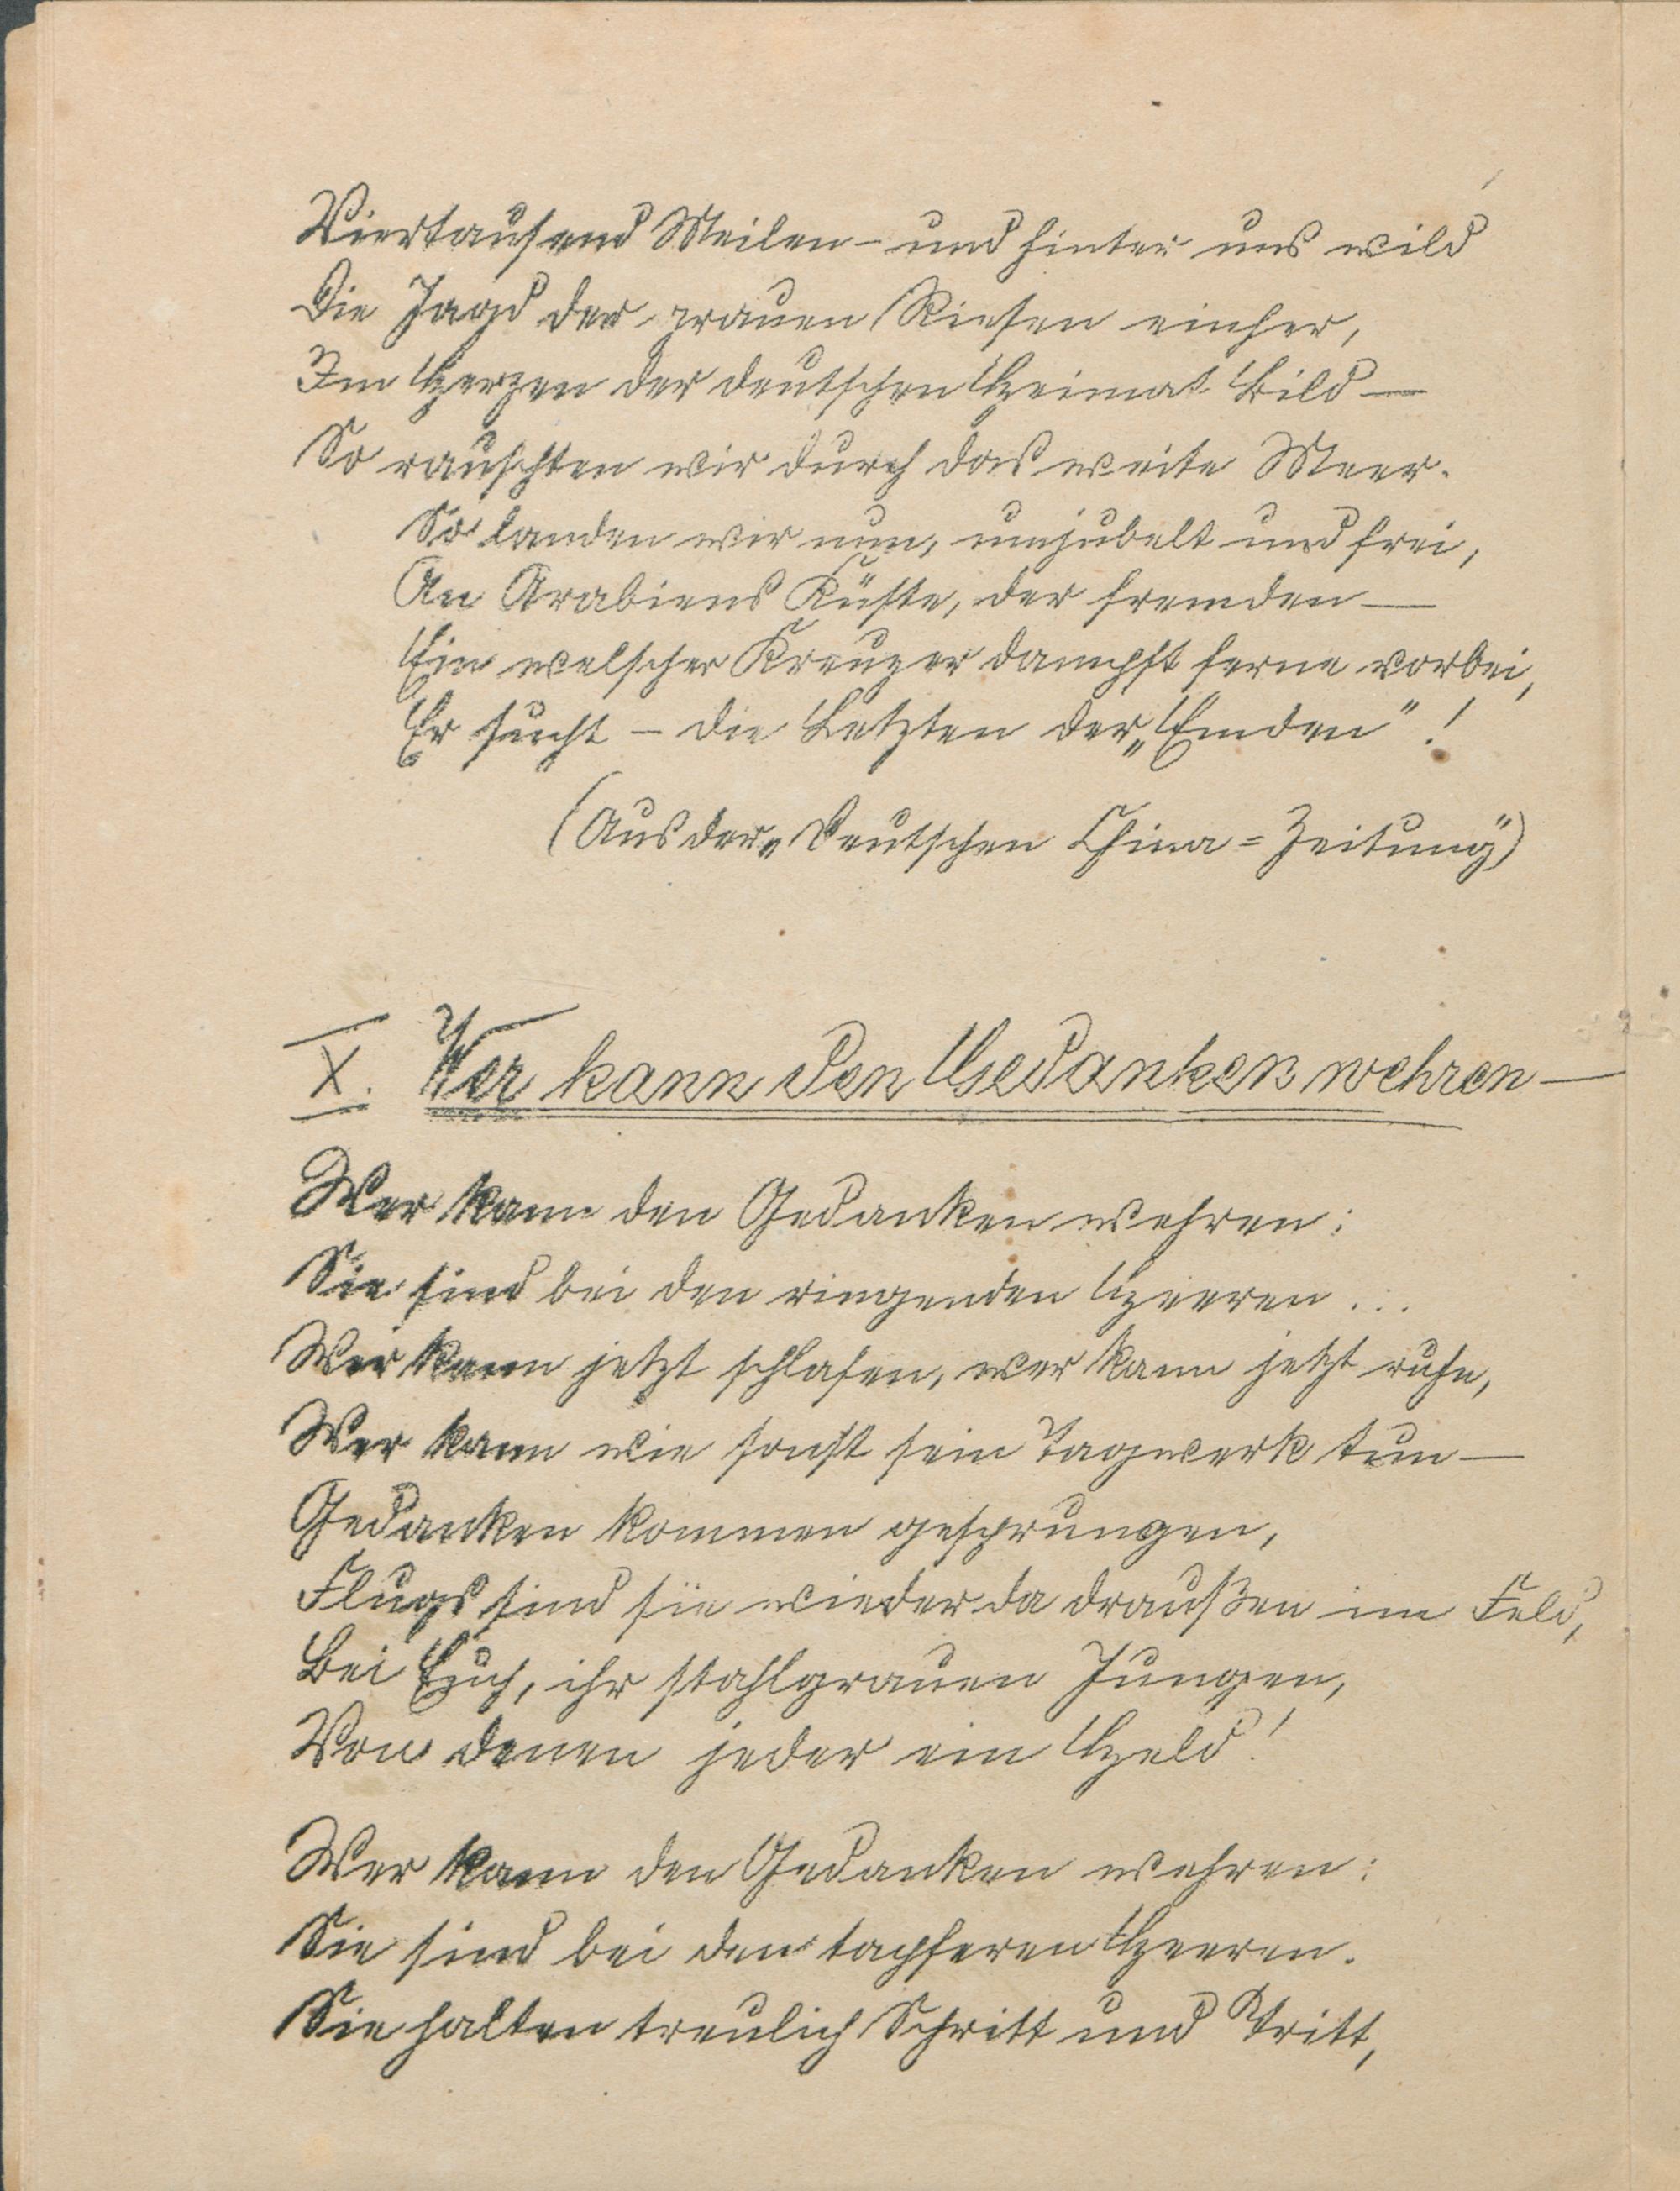 Viertausend Meilen – und hinter uns wild
Die Jagd der grauen Riesen einher,
Im Herzen der deutschen Heimat Bild –
So rauschten wir durch das weite Meer.
So landen wir nun, umjubelt und frei,
An Arabiens Küste, der fremden –
Ein welscher Kreuzer dampft ferne vorbei,
Er sucht – die Letzten der „Emden“!
(Aus der „Deutschen China=Zeitung“)
X. Wer kann den Gedanken wehren –
Wer kann den Gedanken wehren:
Sie sind bei den ringenden Heeren...
Wer kann jetzt schlafen, wer kann jetzt ruhn,
Wer kann wie sonst sein Tagwerk tun –
Gedanken kommen gesprungen,
Flugs sind sie wieder da draußen im Feld,
Bei Euch, ihr stahlgrauen Jungen,
Von denen jeder ein Held!
Wer kann den Gedanken wehren:
Sie sind bei den tapferen Heeren.
Sie halten treulich Schritt und Tritt,